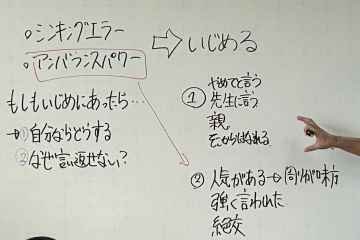 ・シンキングエラー
・アンバランスパワー
⇨いじめる
もしもいじめにあったら…
→①自分ならどうする
②なぜ言い返せない?
①やめてと言う
先生に言う
親
そこからはなれる
②人気がある→周りが味方
強く言われた
絶交